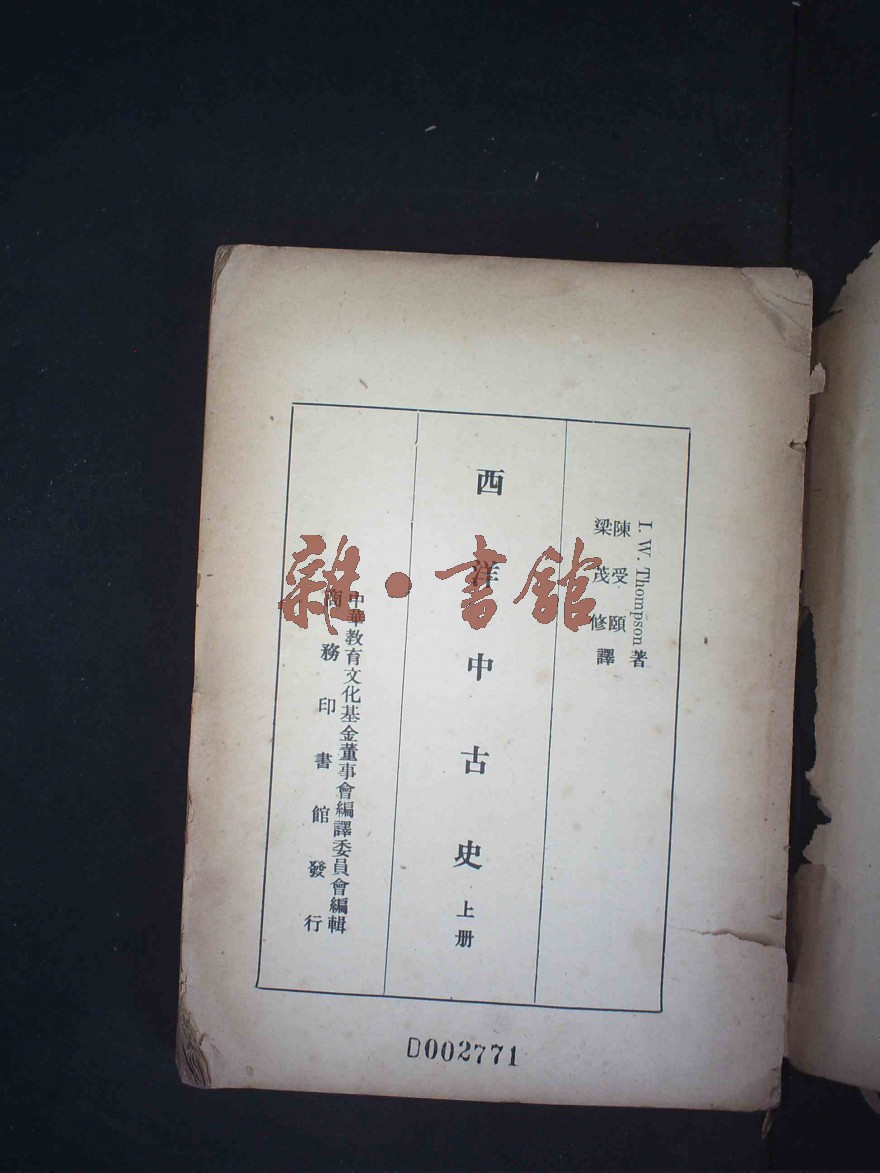 I. W. Thompson 著
陳受頤
梁茂修 譯
西洋中古史 上册
中華教育文化基金董事會編譯委員會編輯
商務印書館發行
D002771
雜·書館